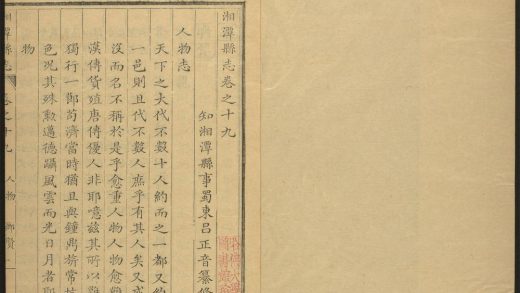 湘潭縣志卷之十九
知湘潭縣事蜀東呂正音纂修
人物志
天下之大代不數十人約而之一都又約
一邑則且代不數人庶乎有其人矣又或
沒而名不稱於是乎愈重人物人物愈難
漢傳貨殖唐傳優人非耶意茲其所以難
獨行一鄉苟濟當時猶且與鐘鼎旂常
色况其殊勲邁德躡風雲而光日月者
物
湘潭縣志 卷之十九 人物